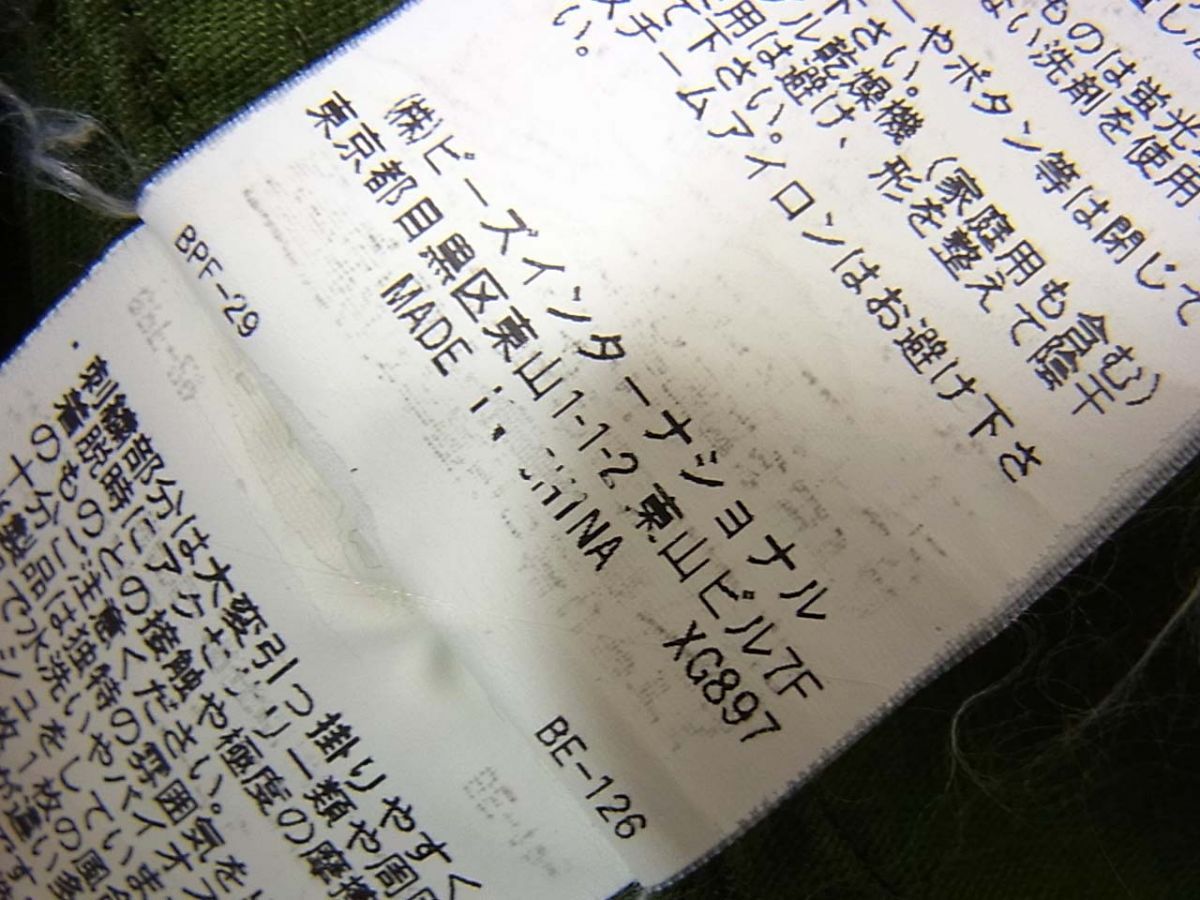 ものは蛍光
ない洗剤を使用
ーやボタン等は閉じて
下さい。
ル乾燥機（家庭用も含む）
用は避け、形を整えて陰干
て下さい。
チームアイロンはお避け下さ
い。
㈱ビーズインターナショナル
東京都目黒区東山1-1-2 東山ビル7F
MADE in CHINA XG897
BPF-29 BE-126
・刺繍部分は大変引っ掛りやすく
着脱時にアクセサリー類や周
のものとの接触や極度の摩擦
十分ご注意ください。
製品は独特の雰囲気を
で水洗いやバイオ
シュをしていま
枚1枚の風
が違い